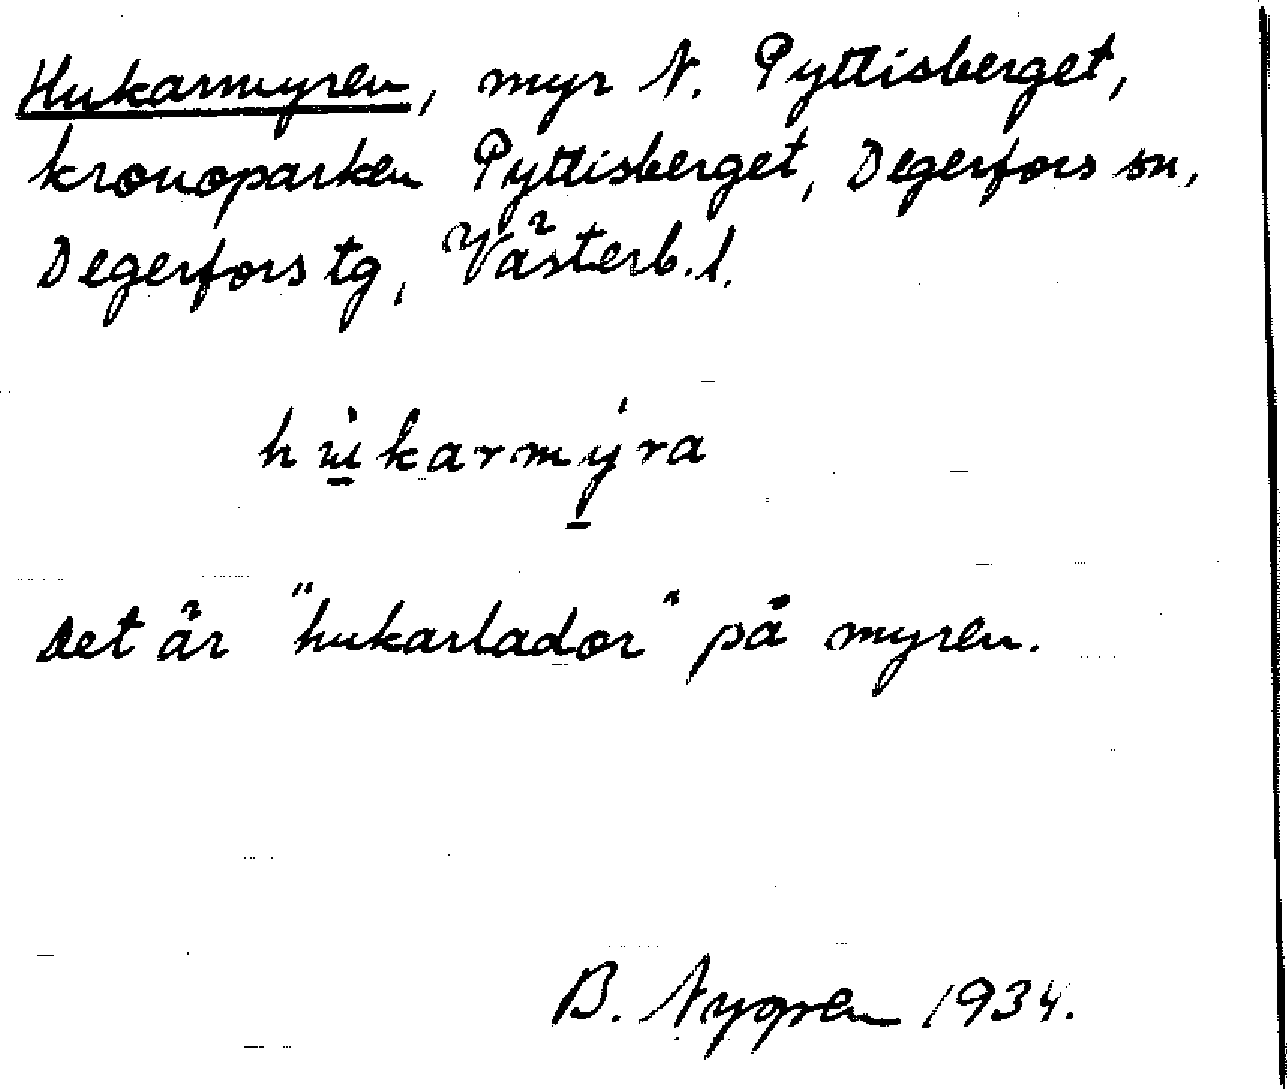 Hukarmyren, myr N. Pyttisberget,
kronoparken Pyttisberget, Degerfors sn,
Degerfors tg, Västerb. l.
hùkarmýra
Det är "hukarlador" på myren.
B. Nygren 1934.